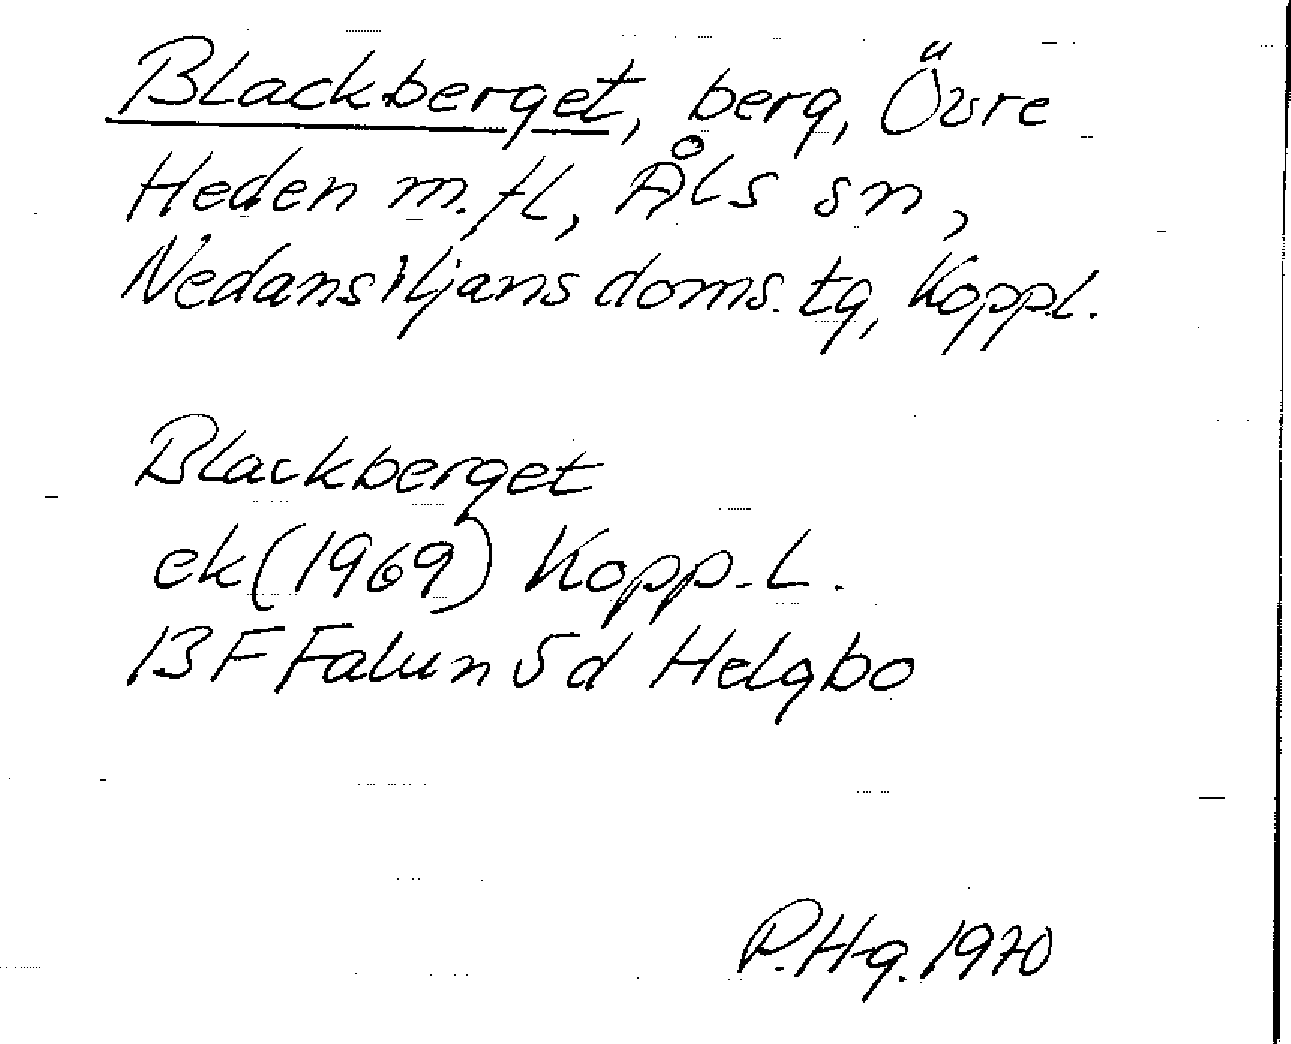 Blackberget, berg, Övre
Heden m.fl, Åls sn,
Nedansiljans doms. tg, Koppl.
Blackberget
ek (1969) Kopp. L.
13 F Falun 5d Helgbo
P.Hg. 1970